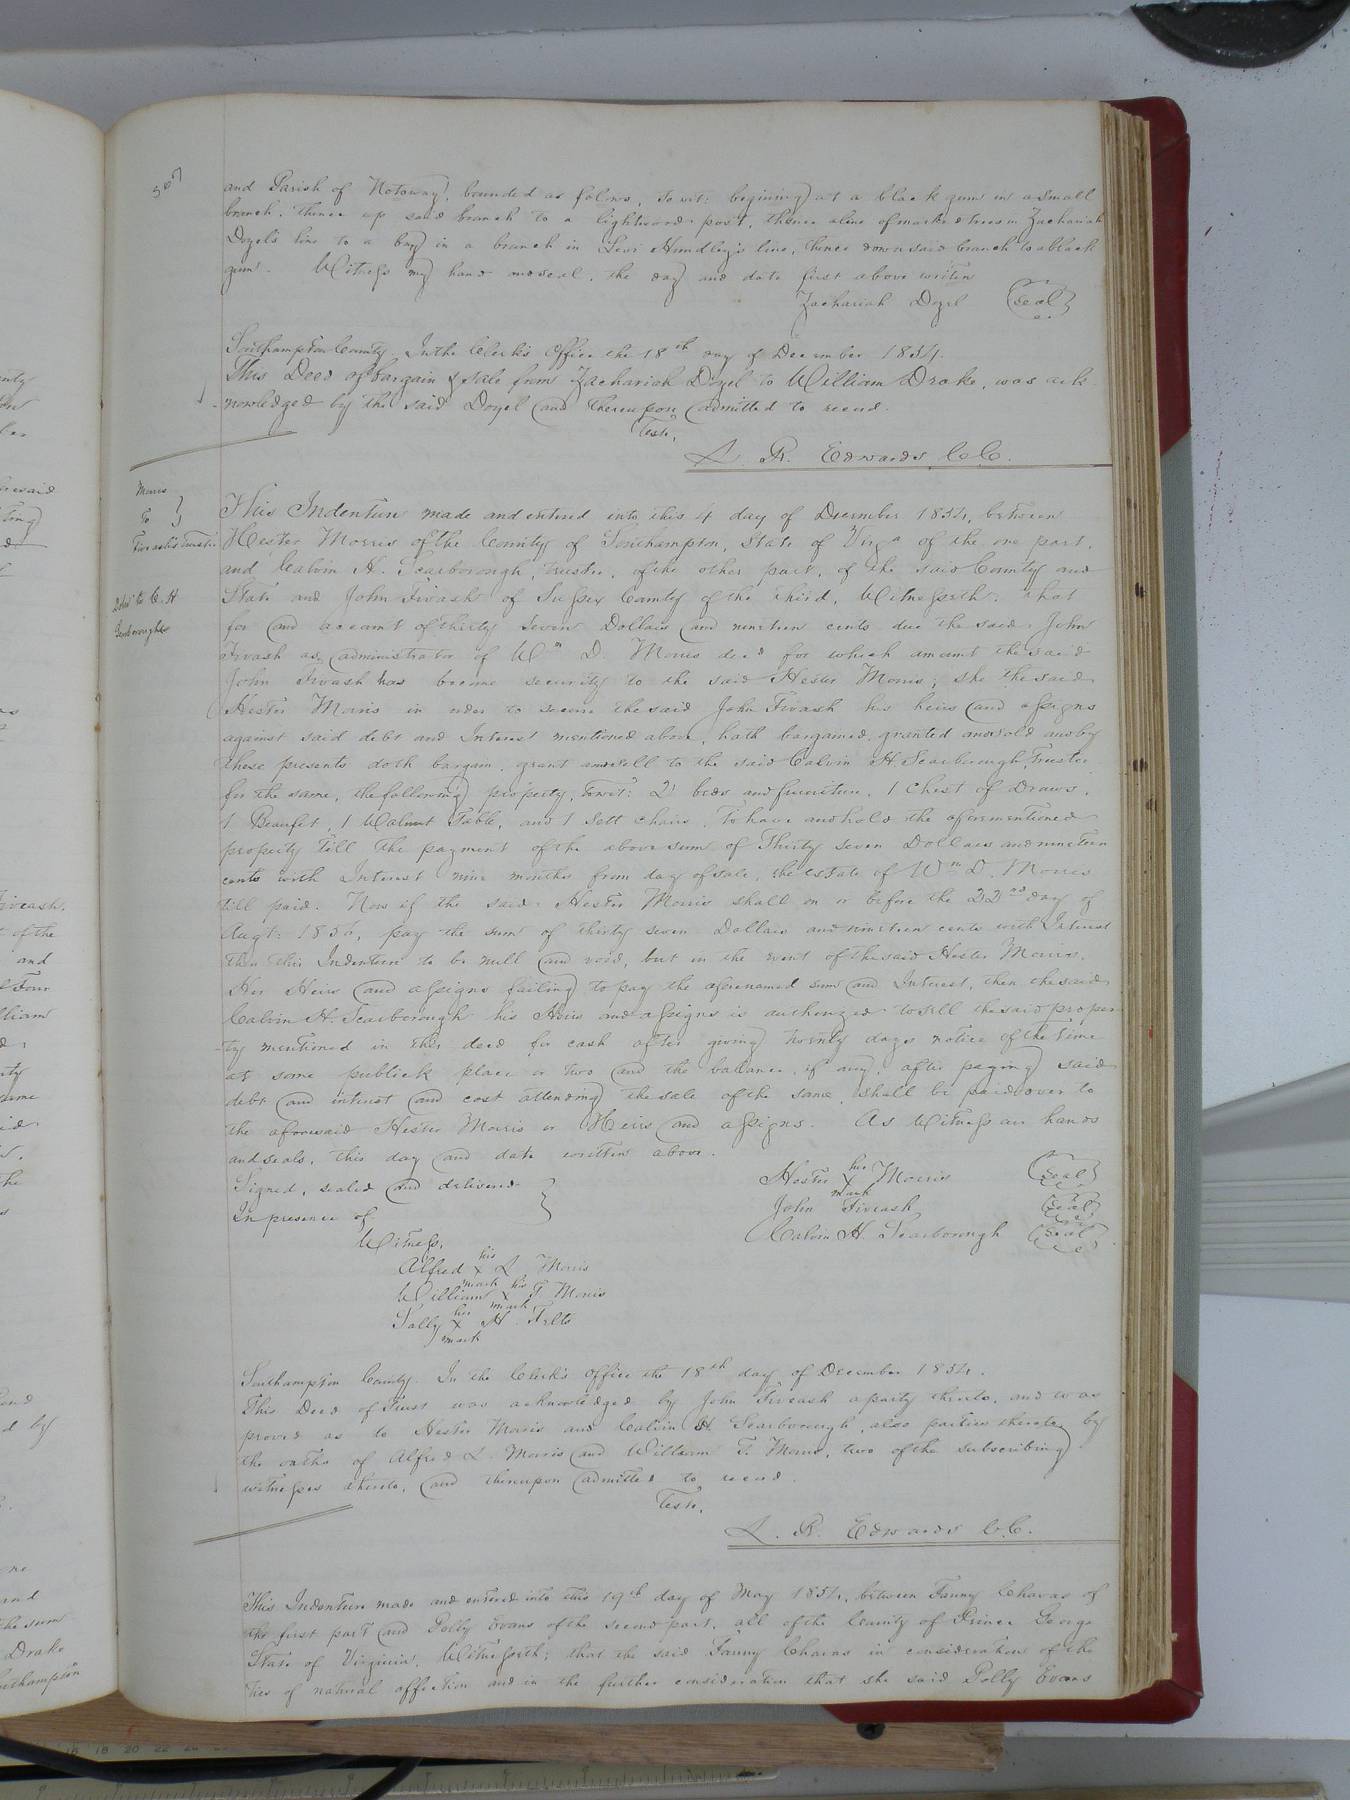 and Parish of Notoway, bounded as folows, to wit: begining at a black gum in a small
branch, thence up said branch to a lightwood post, thence a line of marked trees in Zachariah
Dozel's line to a bay in a branch in Levi Hundley's line, thence down said branch to a black
gum. Witness my hand and seal, the day and date first above writen
Zachariah Dozel (Seal)
Southampton County. In the Clerk's Office the 18th day of December 1854.
This Deed of bargain & sale from Zachariah Dozel to William Drake, was ack-
nowledged by the said Dozel and thereupon admitted to record.
Teste,
L. R. Edwards C.C.
Morris
to
Fiveash's Trustee
Deld to C. H
Scarborough
This Indenture made and entered into this 4 day of December 1854, between
Hester Morris of the County of Southampton, State of Virga of the one part,
and Calvin H. Scarborough, trustee, of the other part, of the said County and
State and John Fivash of Sussex County of the third, Witnesseth: that
for and account of thirty seven Dollars and nineteen cents due the said John
Fivash as administrator of Wm D. Morris decd for which amount the said
John Fivash has become security to the said Hester Morris, she the said
Hester Morris in order to secure the said John Fivash his heirs and assigns
against said debt and Interest mentioned above, hath bargained, granted and sold and by
these presents doth bargain, grant and sell to the said Calvin H. Scarborough, Trustee
for the same, the following property, to wit: 2 beds and furniture, 1 Chest of Draws,
1 Beaufet, 1 Walnut Table, and 1 Sett chairs, To have and hold the aforementioned
property till the payment of the above sum of Thirty seven Dollars and nineteen
cents with Interest nine months from day of sale, the estate of Wm D. Morris
till paid. Now if the said Hester Morris shall on or before the 22nd day of
Augt. pay the sum of thirty seven Dollars and nineteen cents with Interest
then this Indenture to be null and void, but in the event of the said Hester Morris,
Her Heirs and assigns failing to pay the aforenamed sum and Interest, then the said
Calvin H. Scarborough his Heirs and assigns is authorized to sell the said proper-
ty mentioned in this deed for cash after giving twenty days notice of the time
at some publick place or two and the ballance, if any, after paying said
debt and interest and cost attending the sale of the same, shall be paid over to
the aforesaid Hester Morris or Heirs and assigns. As Witness our hands
and seals, this day and date written above.
Signed, sealed and delivered
In presence of
Witness,
Hester her X mark Morris (Seal)
John Fiveash (Seal)
Calvin H. Scarborough (Seal)
Alfred his X mark L. Morris
William his X mark T. Morris
Sally her X mark H. Felts
Southampton County. In the Clerk's Office the 18th day of December 1854.
This Deed of Trust was acknowledged by John Fiveash a party thereto, and was
proved as to Hester Morris and Calvin H. Scarborough, also parties thereto by
the oaths of Alfred L. Morris and William T. Morris, two of the subscribing
witnesses thereto, and thereupon admitted to record.
Teste,
L. R. Edwards C.C.
This Indenture made and entered into this 19th day of May 1854, between Fanny Chavas of
the first part and Polly Evans of the second part, all of the County of Prince George
State of Virginia, Witnesseth; that the said Fanny Chavas in consideration of the
ties of natural affection and in the further consideration that she said Polly Evans